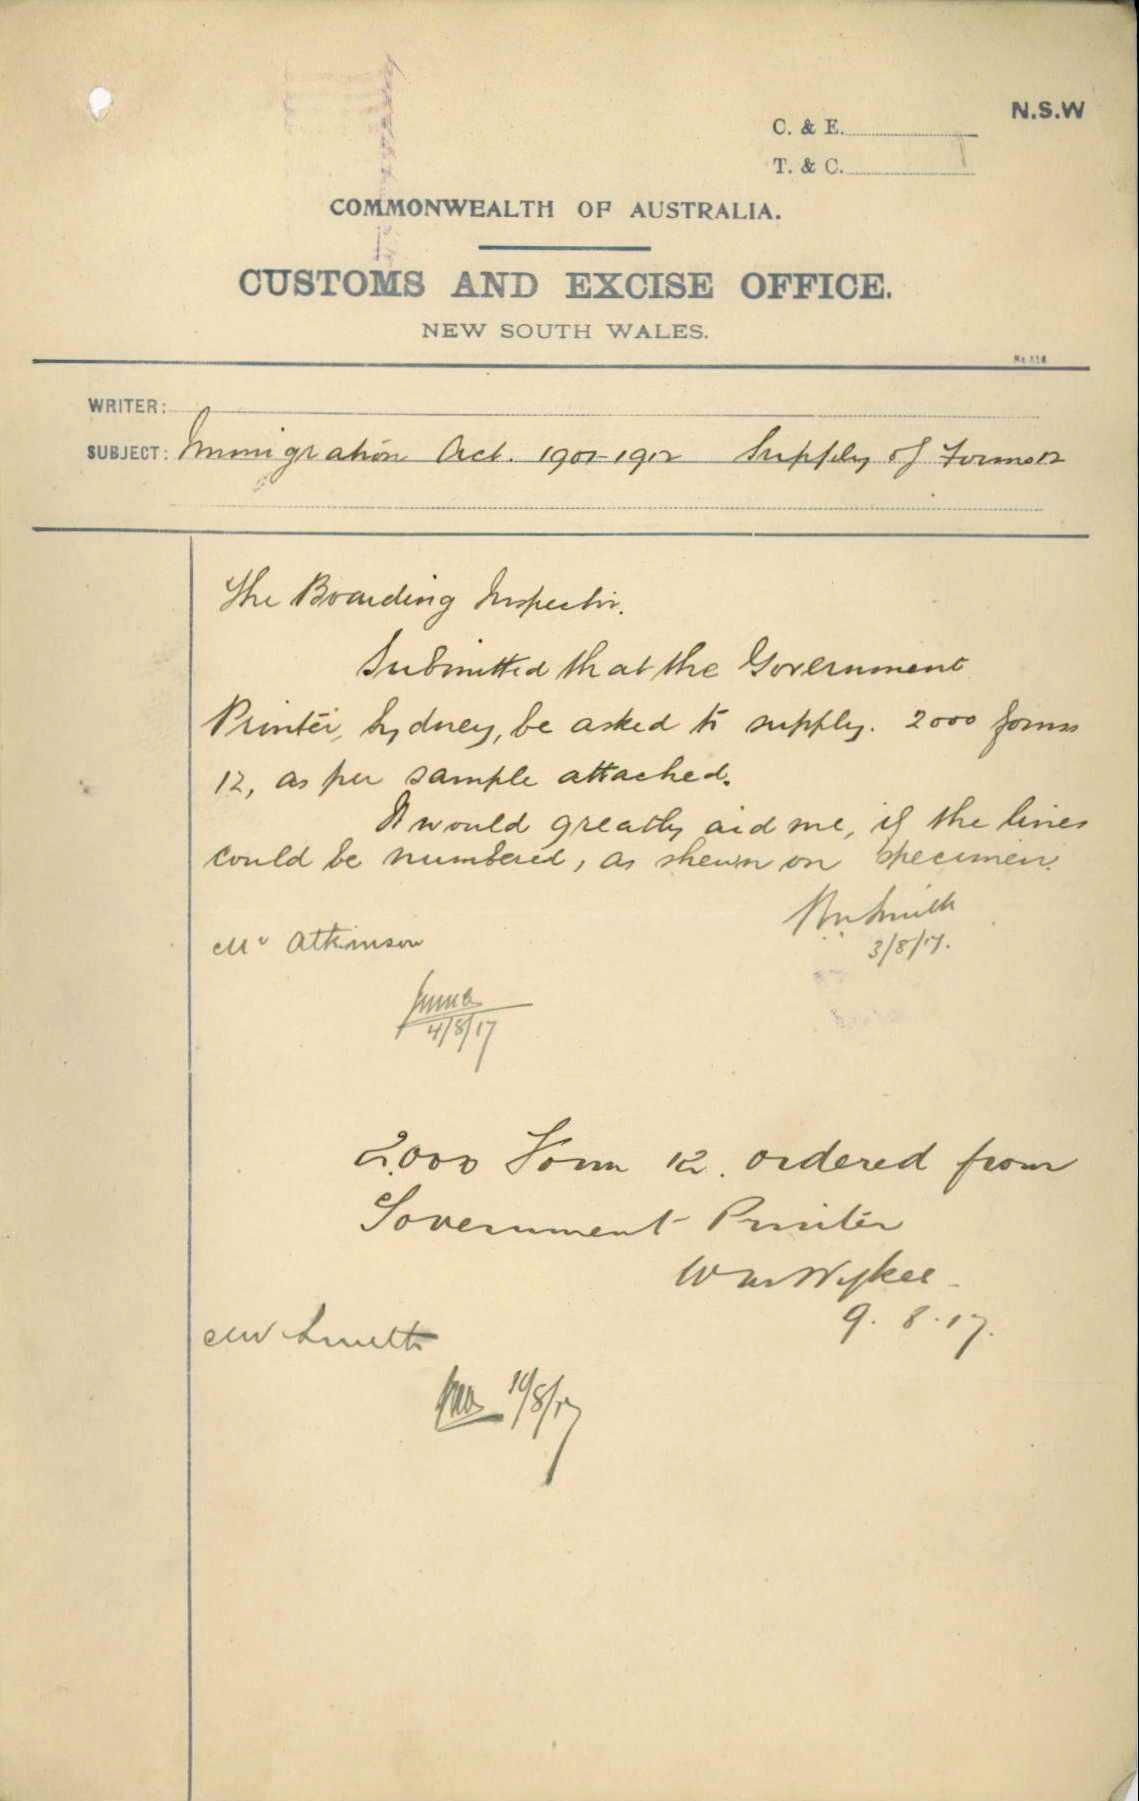 N.S.W
C. & E.
T. & C.
COMMONWEALTH OF AUSTRALIA.
CUSTOMS AND EXCISE OFFICE.
NEW SOUTH WALES.
WRITER:
SUBJECT: Immigration Act. 1901-1912 Supply of Forms 12
The Boarding Inspector.
Submitted that the Government
Printer, Sydney, be asked to supply. 2000 forms
12, as per sample attached.
It would greatly aid me, if the lines
could be numbered, as shewn on specimen.
Smith
3/8/17.
Mr Atkinson
4/8/17
2,000 Form 12. ordered from
Government Printer
9. 8. 17.
Mr Smith
10/8/17